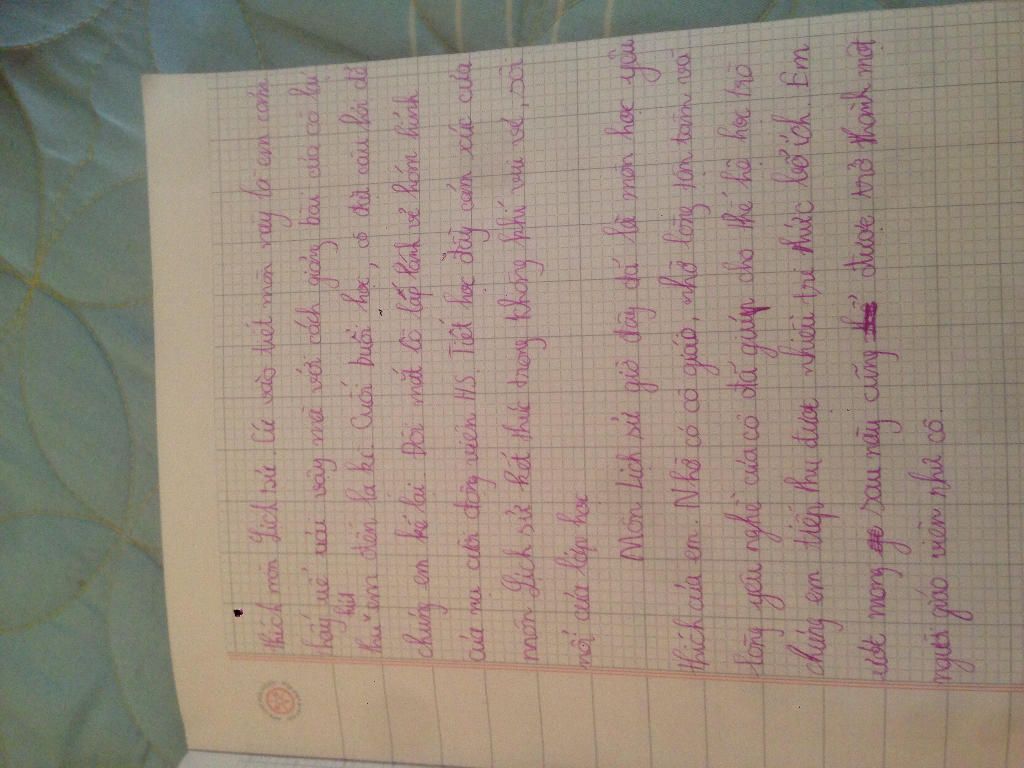 thích môn Lịch sử. Cứ vào tiết môn này là em cảm
thấy uể oải vậy mà với cách giảng bài của cô lại
hút
em đến lạ kì. Cuối buổi học, cô đặt câu hỏi để
chúng em trả lời. Đôi mắt cô lấp lánh vẻ hóm hỉnh
của nụ cười động viên HS. Tiết học đầy cảm xúc của
môn Lịch sử kết thúc trong không khí vui vẻ, sôi
nổi của lớp học
Môn Lịch sử giờ đây đã là môn học yêu
thích của em. Nhờ có cô giáo, nhờ lòng tận tâm với
lòng yêu nghề của cô đã giúp cho thế hệ học trò
chúng em tiếp thu được nhiều tri thức bổ ích. Em
ước mong sau này cũng được trở thành một
người giáo viên như cô.